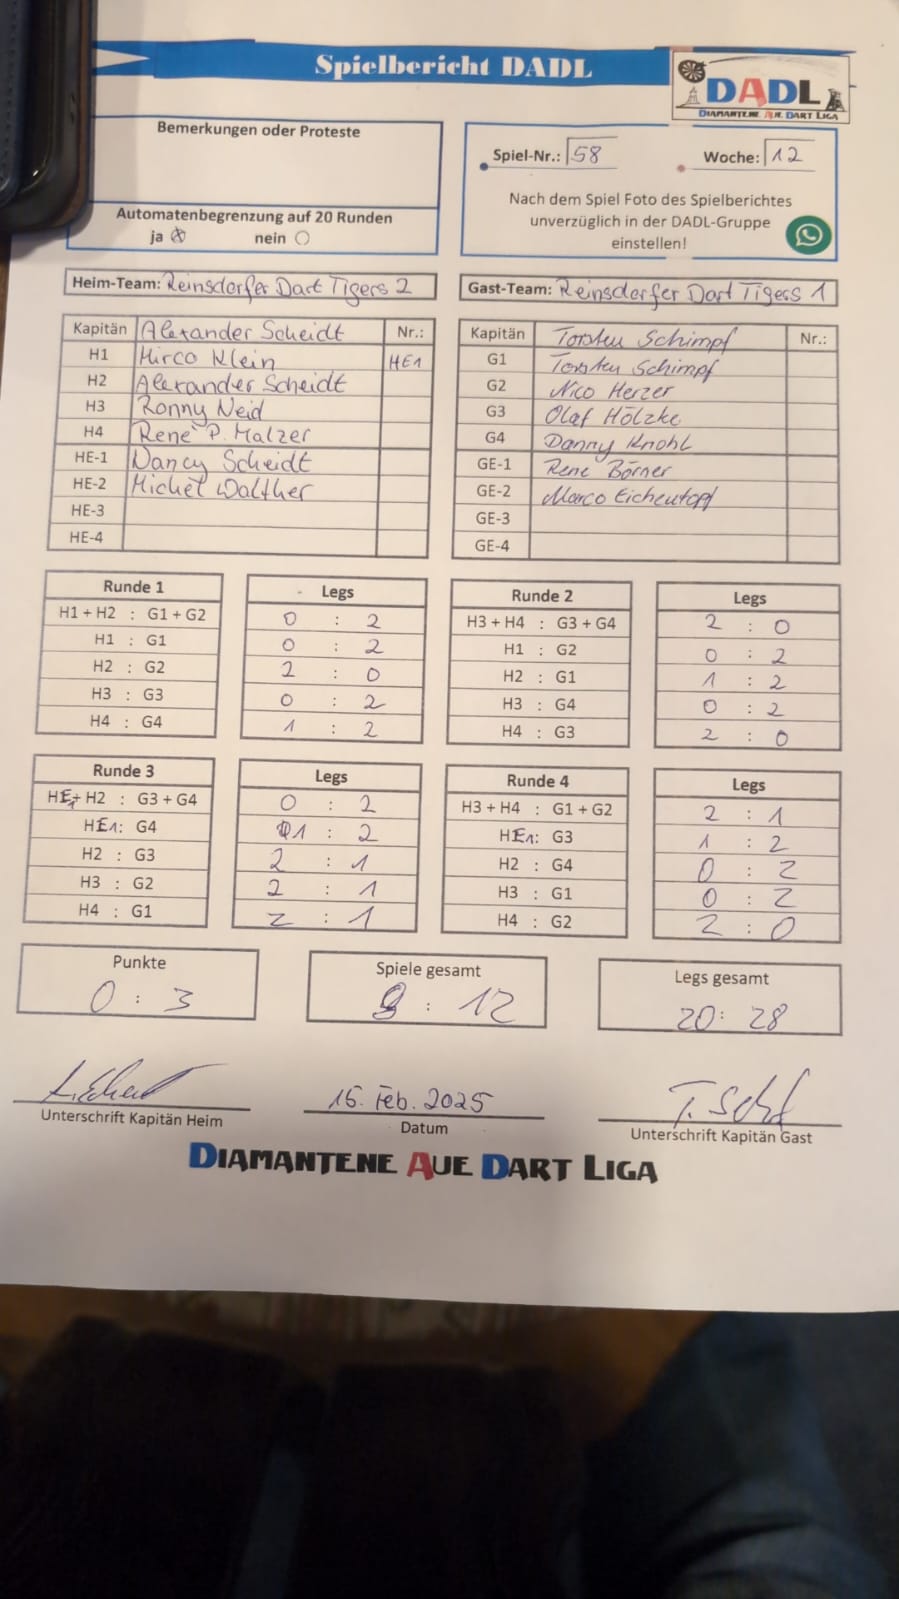 Spielbericht DADL
DADL
DIAMANTENE AUE DART LIGA
Bemerkungen oder Proteste
Automatenbegrenzung auf 20 Runden
ja nein
Spiel-Nr.: 58 Woche: 12
Nach dem Spiel Foto des Spielberichtes
unverzüglich in der DADL-Gruppe
einstellen!
Heim-Team: Reinsdorfer Dart Tigers 2
Kapitän Alexander Scheidt Nr.:
H1 Mirco Klein HE1
H2 Alexander Scheidt
H3 Ronny Neid
H4 René P. Malzer
HE-1 Nancy Scheidt
HE-2 Michel Walther
HE-3
HE-4
Gast-Team: Reinsdorfer Dart Tigers 1
Kapitän Torsten Schimpf Nr.:
G1 Torsten Schimpf
G2 Nico Herzer
G3 Olaf Hölzke
G4 Danny Knohl
GE-1 Rene Börner
GE-2 Marco Eichentopf
GE-3
GE-4
Runde 1 Legs
H1 + H2 : G1 + G2 0 : 2
H1 : G1 0 : 2
H2 : G2 2 : 0
H3 : G3 0 : 2
H4 : G4 1 : 2
Runde 2 Legs
H3 + H4 : G3 + G4 2 : 0
H1 : G2 0 : 2
H2 : G1 1 : 2
H3 : G4 0 : 2
H4 : G3 2 : 0
Runde 3 Legs
HE1+ H2 : G3 + G4 0 : 2
HE1: G4 1 : 2
H2 : G3 2 : 1
H3 : G2 2 : 1
H4 : G1 2 : 1
Runde 4 Legs
H3 + H4 : G1 + G2 2 : 1
HE1: G3 1 : 2
H2 : G4 0 : 2
H3 : G1 0 : 2
H4 : G2 2 : 0
Punkte
0 : 3
Spiele gesamt
8 : 12
Legs gesamt
20 : 28
Unterschrift Kapitän Heim
16. Feb. 2025
Datum
Unterschrift Kapitän Gast
DIAMANTENE AUE DART LIGA